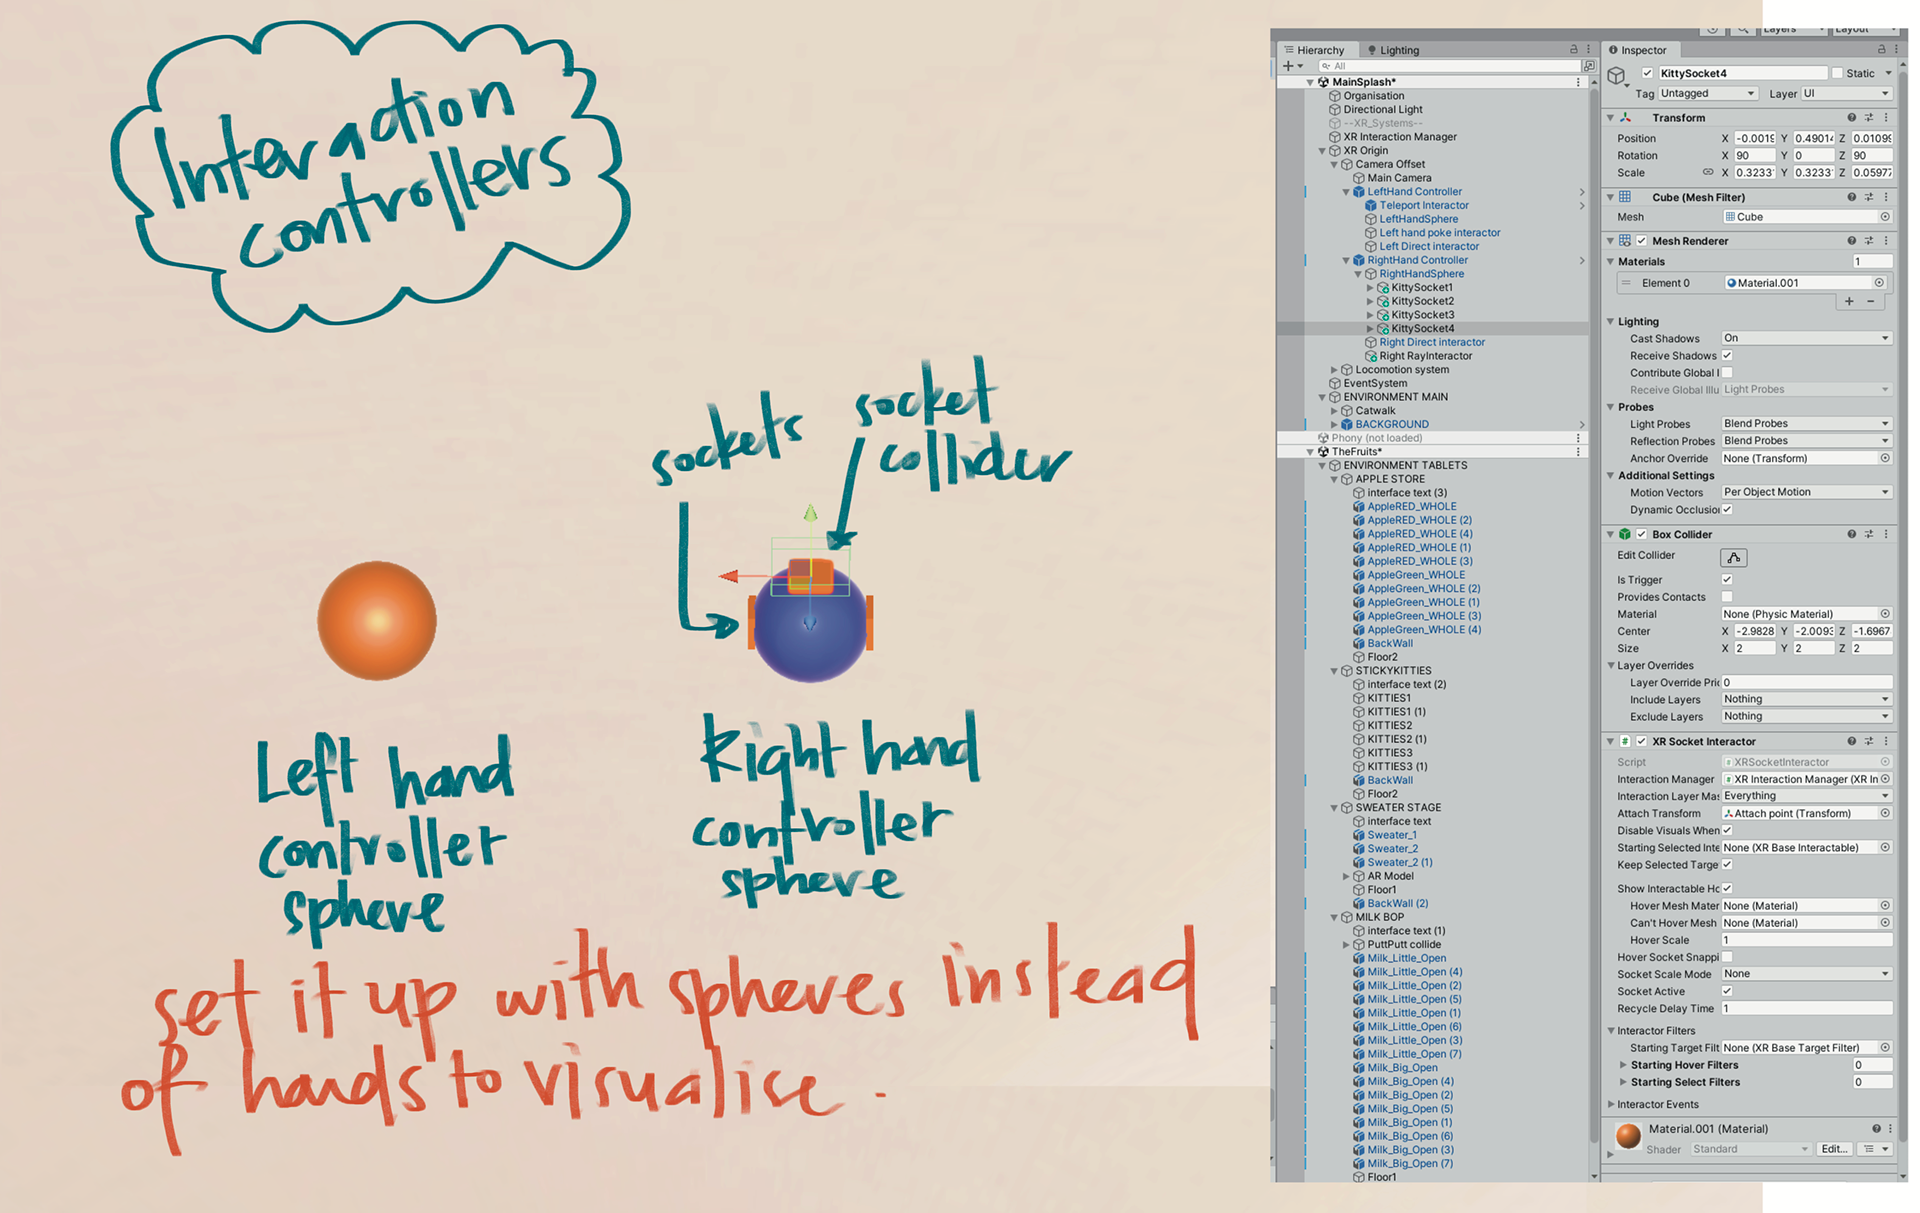 Interaction
controllers
sockets
socket
collider
Left hand
controller
sphere
Right hand
controller
sphere
set it up with spheres instead
of hands to visualise.
Hierarchy
Lighting
All
MainSplash*
Organisation
Directional Light
--XR_Systems--
XR Interaction Manager
XR Origin
Camera Offset
Main Camera
LeftHand Controller
Teleport Interactor
LeftHandSphere
Left hand poke interactor
Left Direct interactor
RightHand Controller
RightHandSphere
KittySocket1
KittySocket2
KittySocket3
KittySocket4
Right Direct interactor
Right RayInteractor
Locomotion system
EventSystem
ENVIRONMENT MAIN
Catwalk
BACKGROUND
Phony (not loaded)
TheFruits*
ENVIRONMENT TABLETS
APPLE STORE
interface text (3)
AppleRED_WHOLE
AppleRED_WHOLE (2)
AppleRED_WHOLE (4)
AppleRED_WHOLE (1)
AppleRED_WHOLE (3)
AppleGreen_WHOLE
AppleGreen_WHOLE (2)
AppleGreen_WHOLE (1)
AppleGreen_WHOLE (3)
AppleGreen_WHOLE (4)
BackWall
Floor2
STICKYKITTIES
interface text (2)
KITTIES1
KITTIES1 (1)
KITTIES2
KITTIES2 (1)
KITTIES3
KITTIES3 (1)
BackWall
Floor2
SWEATER STAGE
interface text
Sweater_1
Sweater_2
Sweater_2 (1)
AR Model
Floor1
BackWall (2)
MILK BOP
interface text (1)
PuttPutt collide
Milk_Little_Open
Milk_Little_Open (4)
Milk_Little_Open (2)
Milk_Little_Open (5)
Milk_Little_Open (1)
Milk_Little_Open (6)
Milk_Little_Open (3)
Milk_Little_Open (7)
Milk_Big_Open
Milk_Big_Open (4)
Milk_Big_Open (2)
Milk_Big_Open (5)
Milk_Big_Open (1)
Milk_Big_Open (6)
Milk_Big_Open (3)
Milk_Big_Open (7)
Floor1
Layers Layout
Inspector
KittySocket4 Static
Tag Untagged Layer UI
Transform
Position X -0.0019 Y 0.49014 Z 0.01099
Rotation X 90 Y 0 Z 90
Scale X 0.3233 Y 0.3233 Z 0.05977
Cube (Mesh Filter)
Mesh Cube
Mesh Renderer
Materials 1
Element 0 Material.001
Lighting
Cast Shadows On
Receive Shadows
Contribute Global I
Receive Global Illu Light Probes
Probes
Light Probes Blend Probes
Reflection Probes Blend Probes
Anchor Override None (Transform)
Additional Settings
Motion Vectors Per Object Motion
Dynamic Occlusion
Box Collider
Edit Collider
Is Trigger
Provides Contacts
Material None (Physic Material)
Center X -2.9828 Y -2.0093 Z -1.6967
Size X 2 Y 2 Z 2
Layer Overrides
Layer Override Pric 0
Include Layers Nothing
Exclude Layers Nothing
XR Socket Interactor
Script XRSocketInteractor
Interaction Manager XR Interaction Manager (XR In
Interaction Layer Mas Everything
Attach Transform Attach point (Transform)
Disable Visuals When
Starting Selected Inte None (XR Base Interactable)
Keep Selected Targe
Show Interactable Ho
Hover Mesh Mater None (Material)
Can't Hover Mesh None (Material)
Hover Scale 1
Hover Socket Snappi
Socket Scale Mode None
Socket Active
Recycle Delay Time 1
Interactor Filters
Starting Target Filt None (XR Base Target Filter)
Starting Hover Filters 0
Starting Select Filters 0
Interactor Events
Material.001 (Material)
Shader Standard Edit...